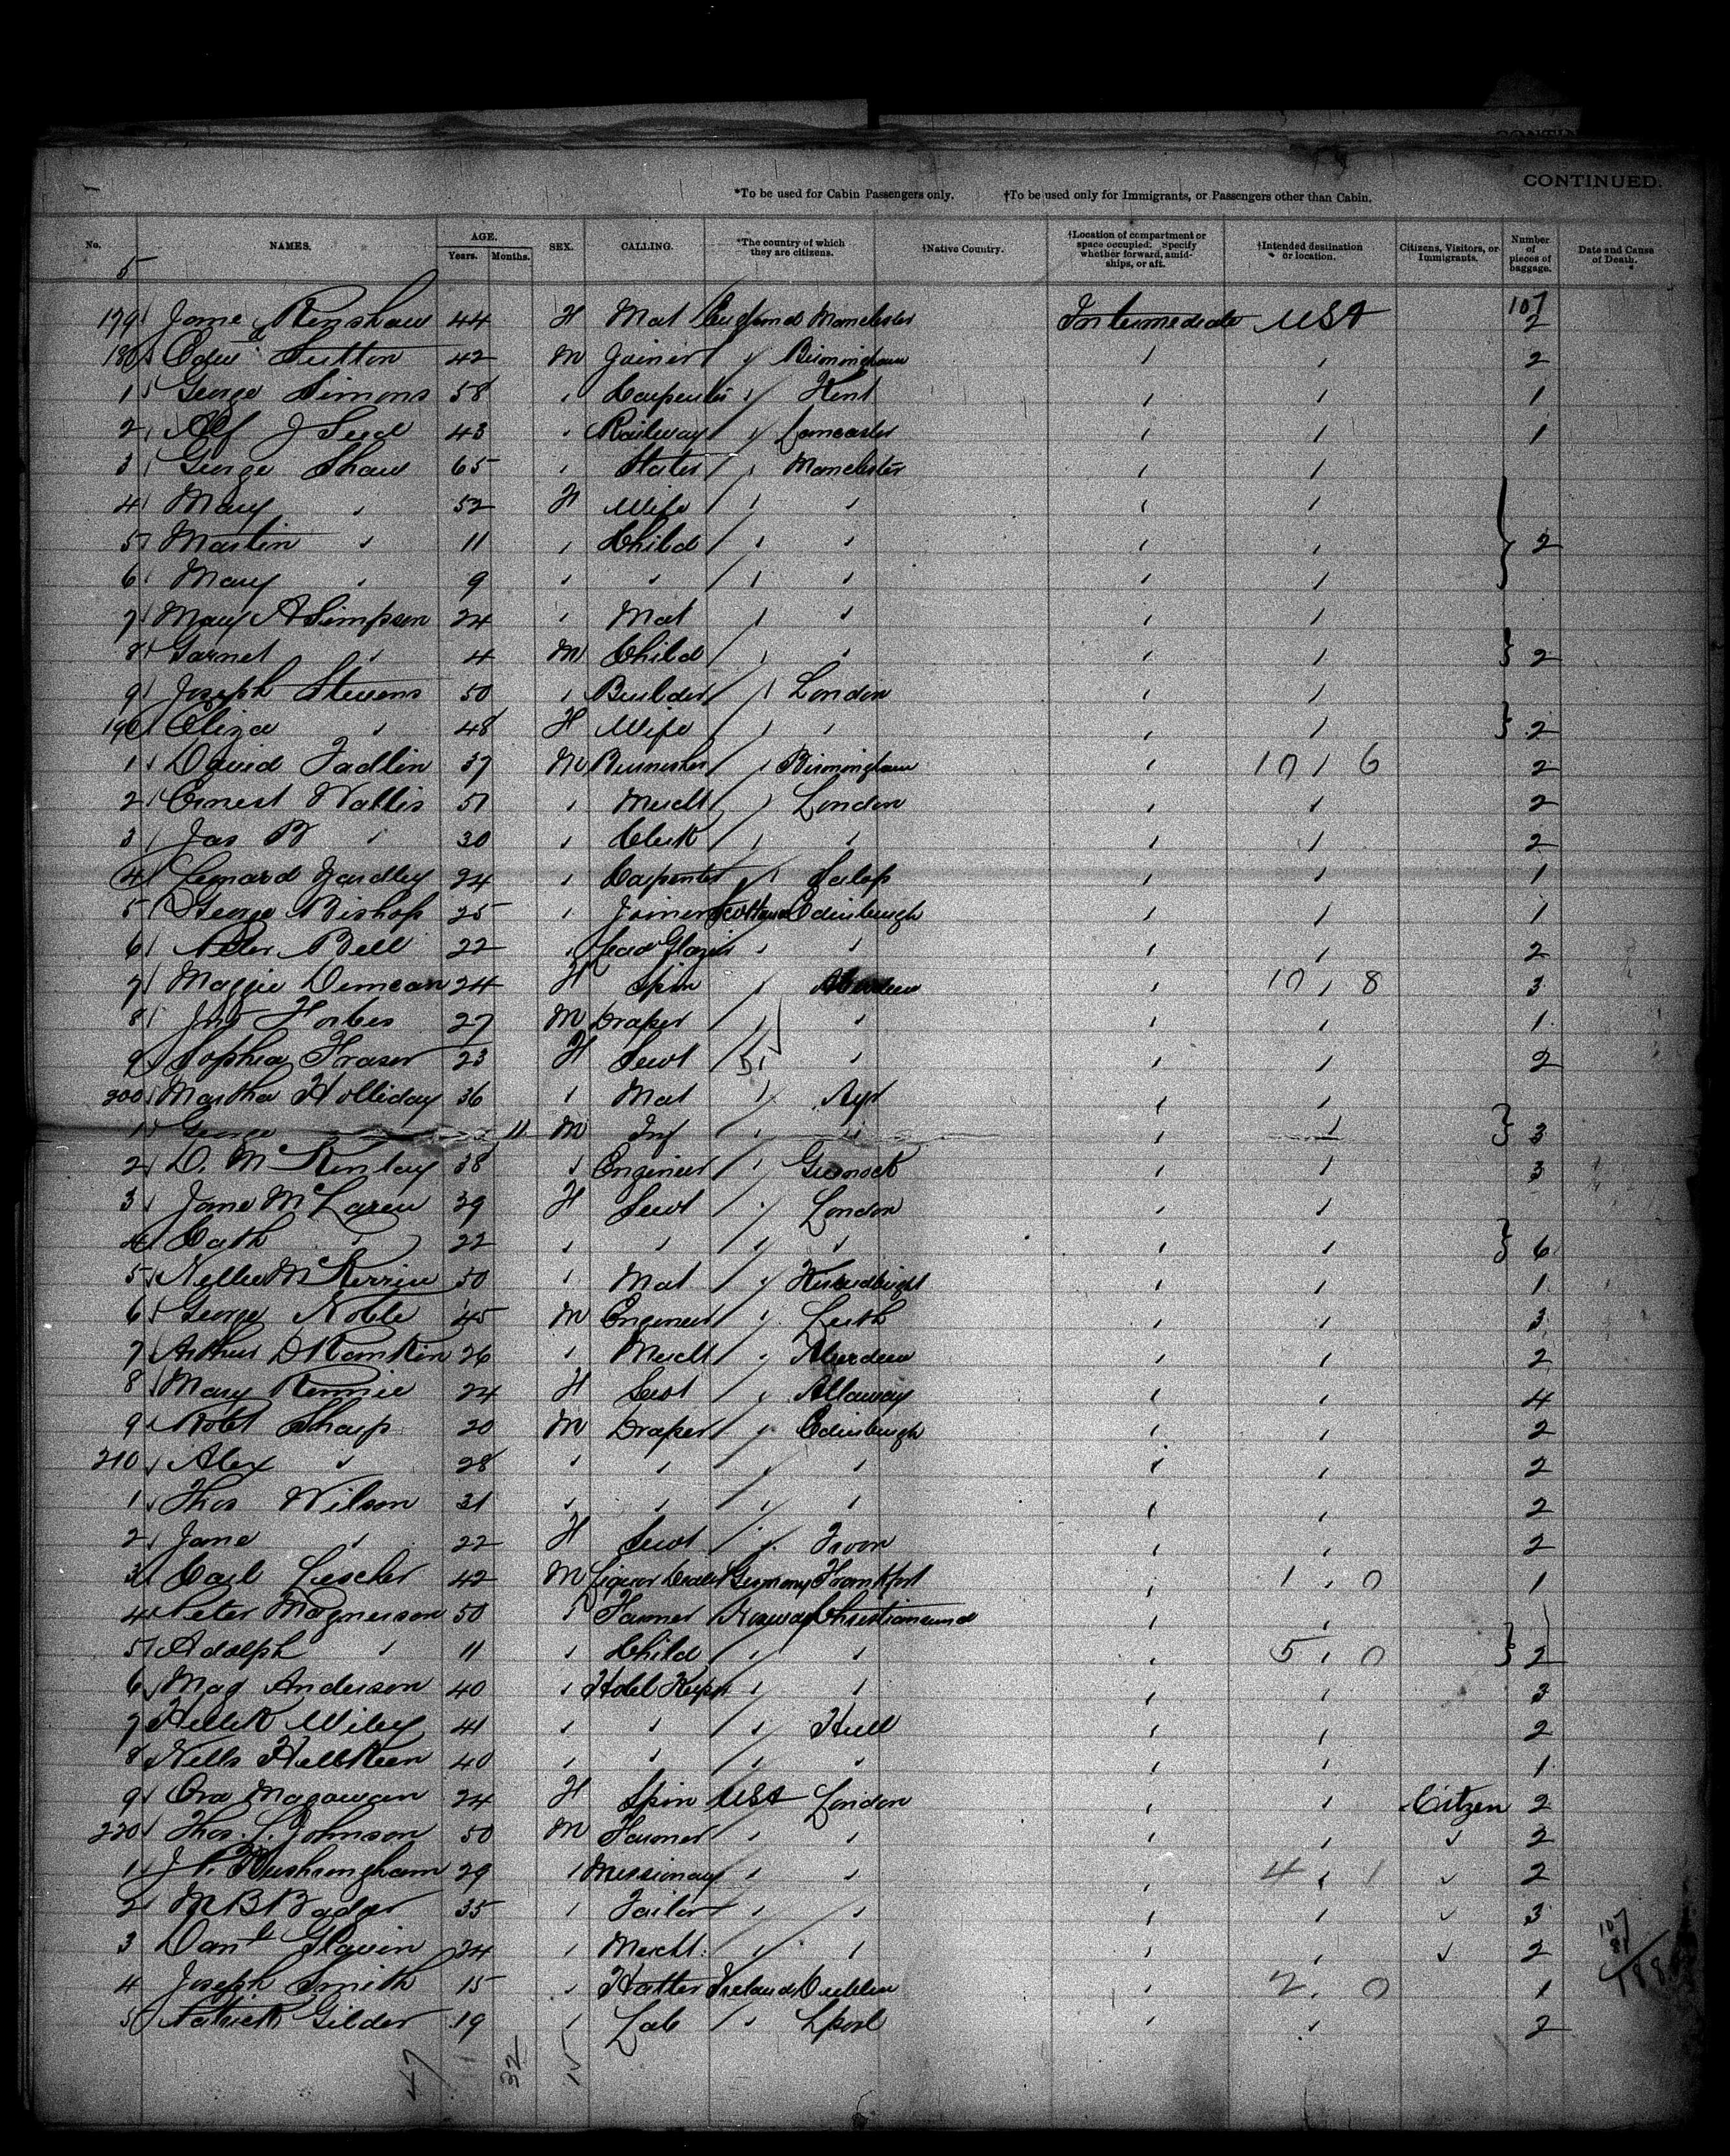 CONTINUED.
*To be used for Cabin Passengers only. †To be used only for Immigrants, or Passengers other than Cabin.
No. NAMES. AGE. Years. Months. SEX. CALLING. *The country of which they are citizens. †Native Country. †Location of compartment or space occupied. Specify whether forward, amidships, or aft. †Intended destination or location. Citizens, Visitors, or Immigrants. Number of pieces of baggage. Date and Cause of Death.
5
107
179 Jane Renshaw 44 F Mat England Manchester Intermediate USA 2
180 Edw Sutton 42 M Joiner " Birmingham " " 2
1 George Simons 58 " Carpenter " Kent " " 1
2 Alf J Seed 43 " Railway " Lancaster " " 1
3 George Shaw 65 " Slater " Manchester " "
4 Mary " 52 F Wife " " " "
5 Martin " 11 " Child " " " " } 2
6 Mary " 9 " " " " " "
7 Mary A Simpson 24 " Mat " " " "
8 Garnet " 4 M Child " " " " } 2
9 Joseph Stevens 50 " Builder " London " "
190 Eliza " 48 F Wife " " " " } 2
1 David 37 M Burnisher " Birmingham " 10 1 6 2
2 Ernest Wallis 51 " Mercht " London " " 2
3 Jas B " 30 " Clerk " " " " 2
4 Leonard Yardley 24 " Carpenter " Salop " " 1
5 George Bishop 25 " Joiner Scotland Edinburgh " " 1
6 Peter Bell 22 " " " " " 2
7 Maggie Duncan 24 F Spin " Aberdeen " 10 1 8 3
8 Jno Forbes 27 M Draper " " " " 1
9 Sophia Fraser 23 F Servt " " " " 2
200 Martha Holliday 36 " Mat " Ayr " "
1 George 11 M Inf " " " " } 3
2 D. McKinlay 38 " Engineer " Greenock " " 3
3 Jane McLaren 29 F Servt " London " "
4 Cath " 22 " " " " " " } 6
5 Nellie McKerrin 50 " Mat " " " 1
6 George Noble 45 M Engineer " Leith " " 3
7 Arthur D Rankin 26 " Mercht " Aberdeen " " 2
8 Mary Rennie 24 F Servt " Alloway " " 4
9 Robt Sharp 20 M Draper " Edinburgh " " 2
210 Alex " 28 " " " " " " 2
1 Thos Wilson 31 " " " " " " 2
2 Jane " 22 F Servt " Troon " " 2
3 Carl Lescher 42 M Liquor Dealer Germany Frankfort " 1 1 0 1
4 Peter Magnerson 50 " Farmer Norway Christiansund " "
5 Adolph " 11 " Child " " " 5 1 0 } 2
6 Mag Anderson 40 " Hotel Keeper " " " " 3
7 Wiley 41 " " " Hull " " 2
8 Nells 40 " " " " " " 1
9 Ora Magawan 24 F Spin USA London " " Citzen 2
220 Thos. L. Johnson 50 M Farmer " " " " " 2
1 29 " Missionary " " " 4 1 1 " 2
2 M B Badger 35 " Tailor " " " " " 3
3 Danl Glavin 24 " Mercht. " " " " " 2
4 Joseph Smith 15 " Hatter Ireland Dublin " 2 1 0 1
5 Patrick Gilder 19 " Lab " Lpool " " 2
107
81
188
47 32 15